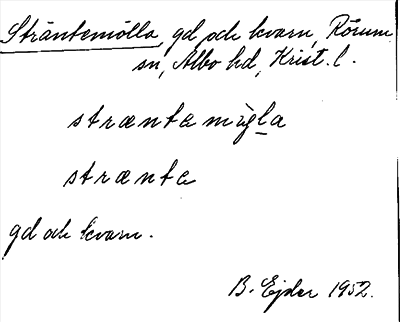 Sträntemölla, gd och kvarn, Rörum
sn, Albo hd, Krist. l.
stræntemùgla
strænte
gd och kvarn.
B. Ejder 1952.